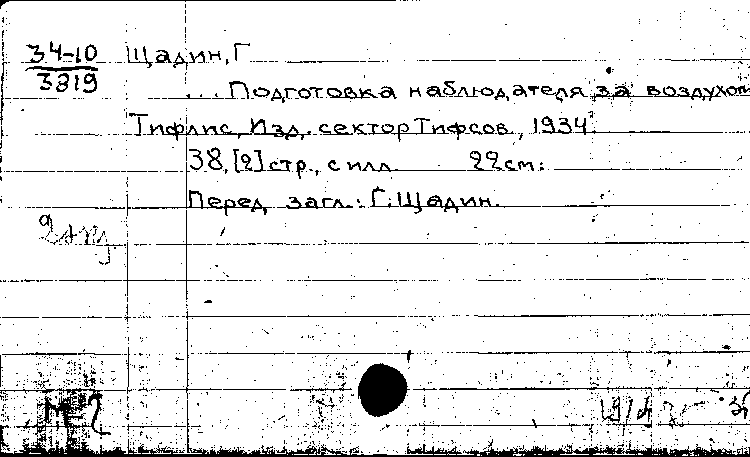 34-10 Щадин, Г
3819
... Подготовка наблюдателя за воздухом
Тифлис, Изд. сектор Тифсов., 1934.
38, [2] стр., с илл. 22 см.
Перед загл.: Г. Щадин.
2 экз
М-2